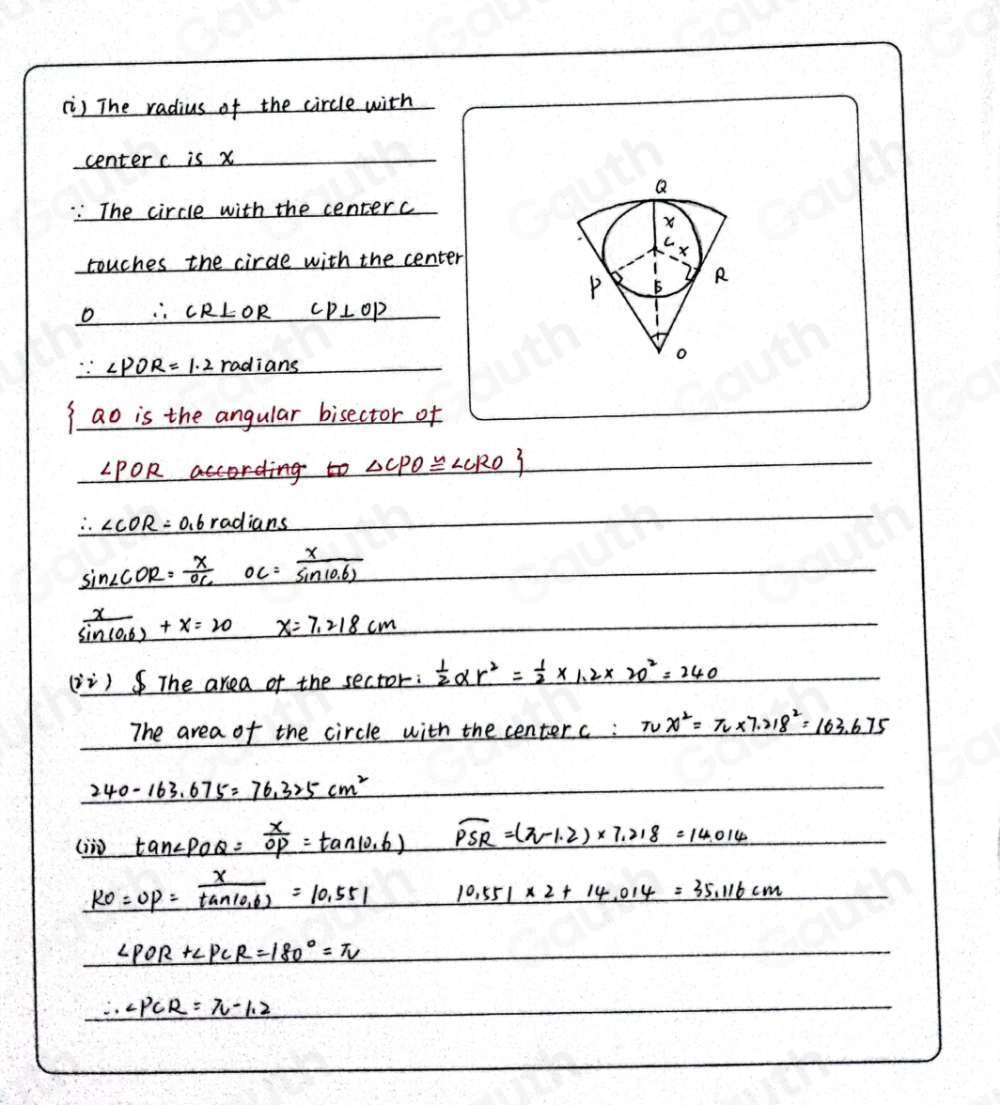 (i) The radius of the circle with
center c is x
∵ The circle with the center c
touches the circle with the center
O ∴ CR⊥OR CP⊥OP
∵ ∠POR = 1.2 radians
{ QO is the angular bisector of
∠POR according to △CPO ≌ ∠CRO }
∴ ∠COR = 0.6 radians
sin∠COR = x/OC OC = x/sin(0.6)
x/sin(0.6) + x = 20 x = 7.218 cm
(ii) The area of the sector: 1/2 αr² = 1/2 × 1.2 × 20² = 240
The area of the circle with the center c : πx² = π×7.218² = 163.675
240 - 163.675 = 76.325 cm²
(iii) tan∠POQ = x/OP = tan(0.6) PSR = (π-1.2) × 7.218 = 14.014
RO = OP = x/tan(0.6) = 10.551 10.551 × 2 + 14.014 = 35.116 cm
∠POR + ∠PCR = 180° = π
∴ ∠PCR = π - 1.2
Q
x
C
x
P
S
R
O
Gauth